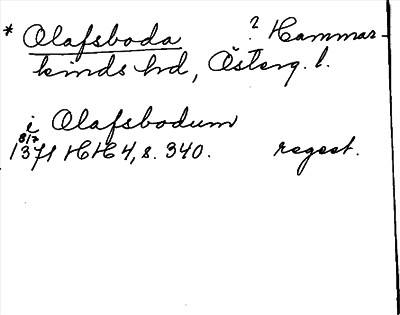 * Olafsboda ? Hammar-
kinds hd, Österg. l.
i Olafsbodum
8/7
1371 HH 4, s. 340. regest.